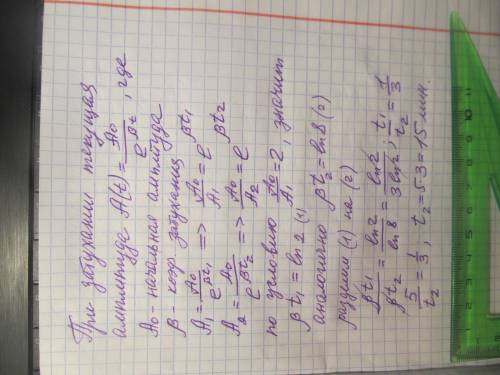 При затухании текущая
амплитуда A(t) = A₀/e^βt, где
A₀ - начальная амплитуда
β - коэф затухания
A₁ = A₀/e^βt₁ => A₀/A₁ = e^βt₁
A₂ = A₀/e^βt₂ => A₀/A₂ = e^βt₂
по условию A₀/A₁ = 2, значит
βt₁ = ln2 (1)
аналогично βt₂ = ln8 (2)
разделим (1) на (2)
βt₁/βt₂ = ln2/ln8 = ln2/3ln2; t₁/t₂ = 1/3
5/t₂ = 1/3, t₂ = 5·3 = 15 мин.
1 2 3 4 5 6 7 8 9 10 11